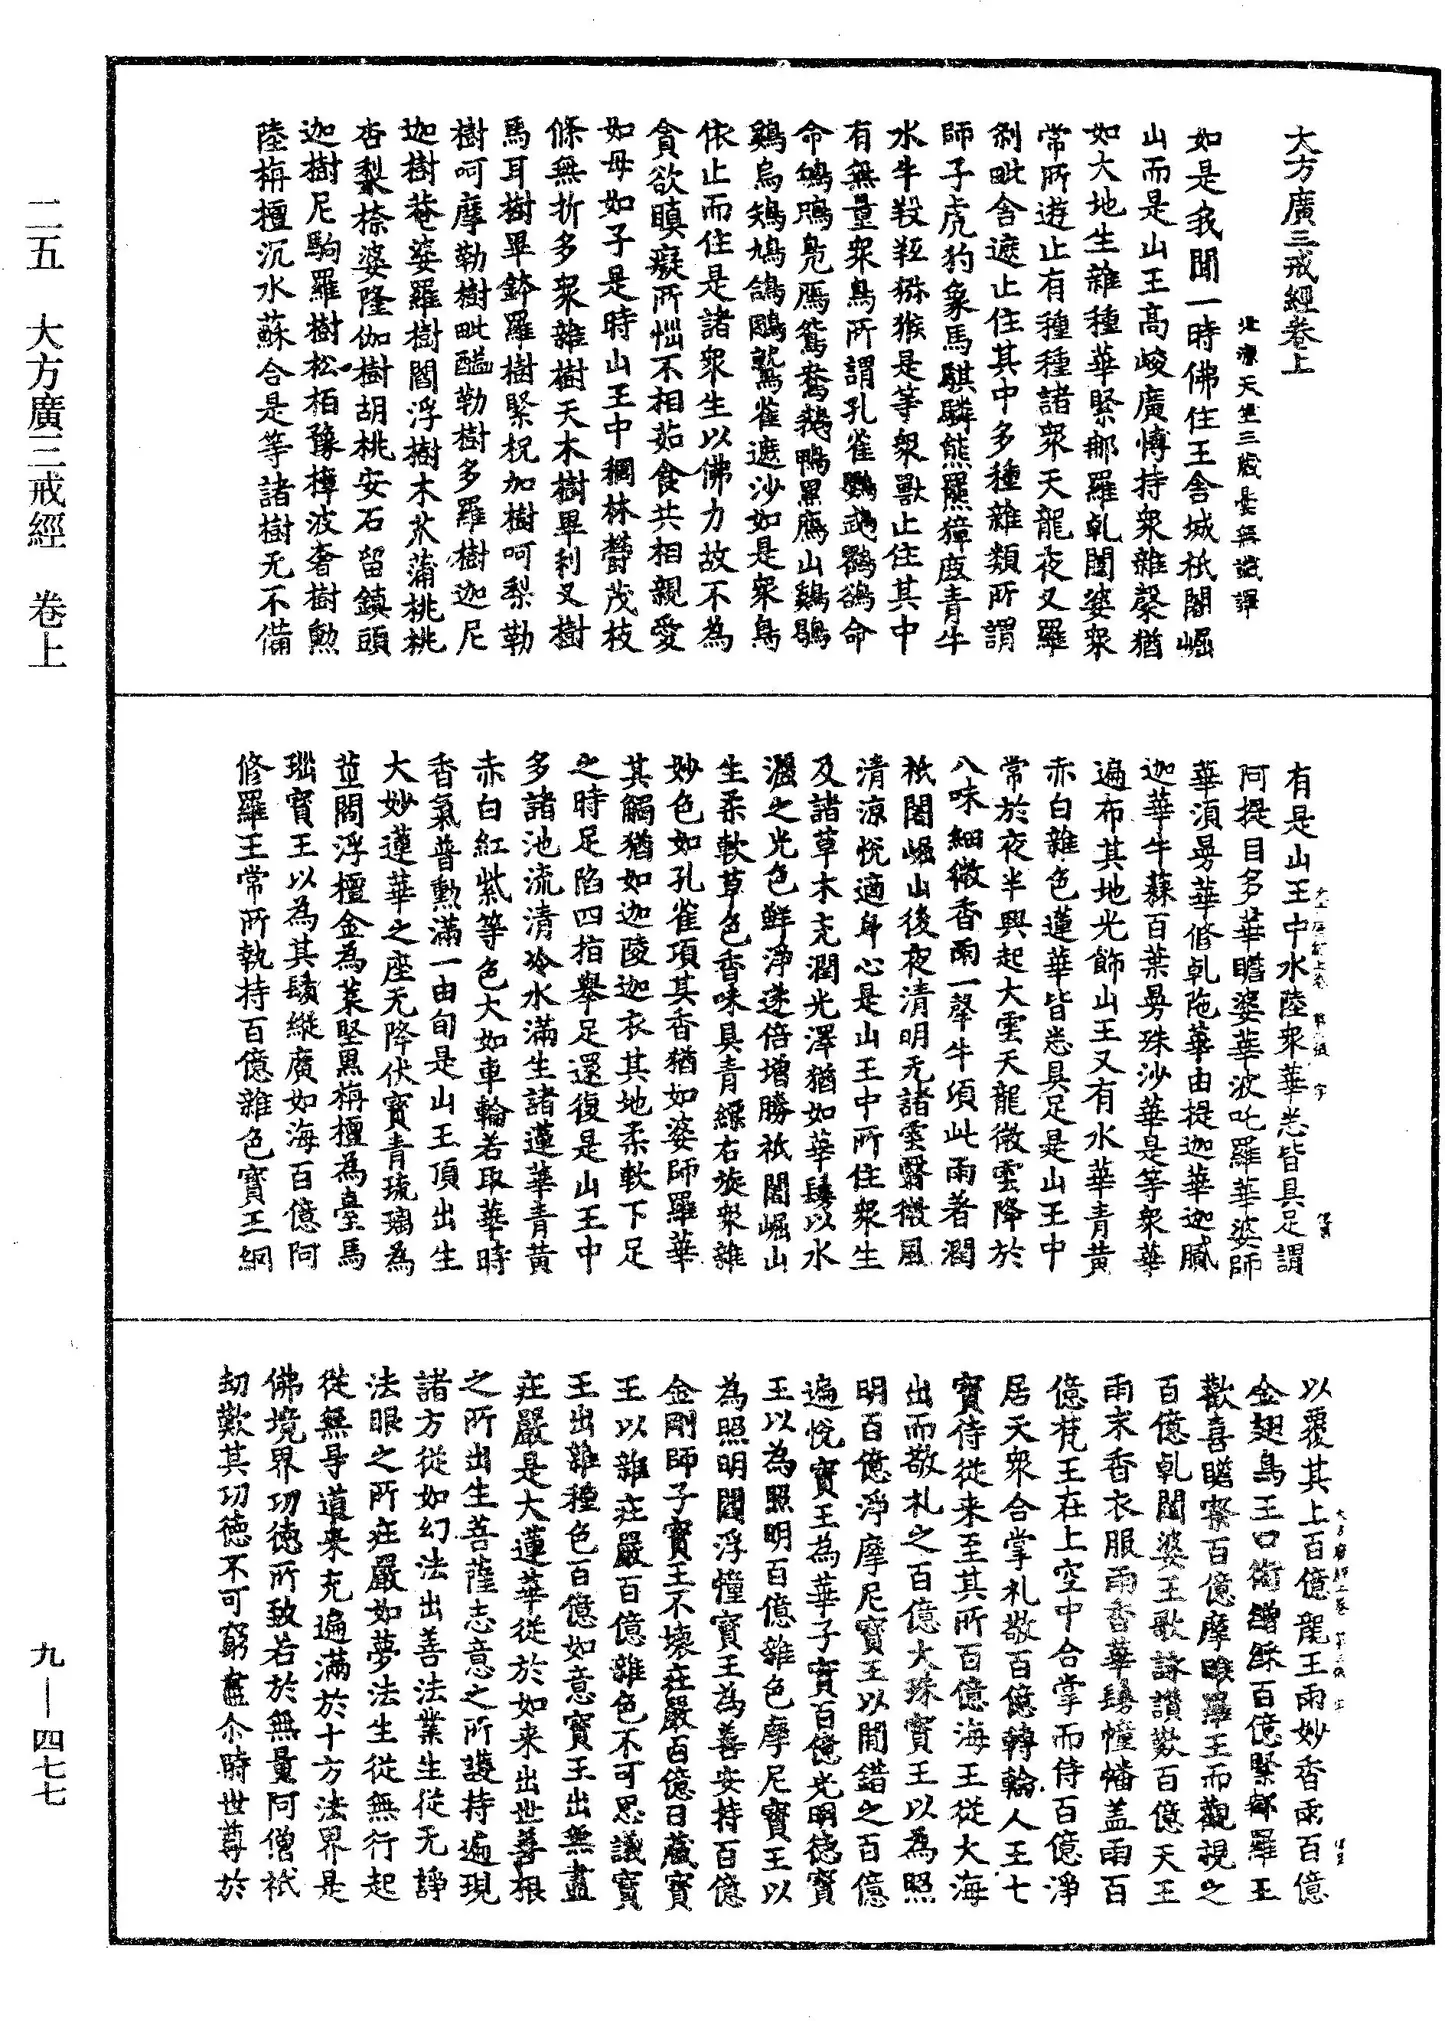 大方廣三戒經卷上
北涼天竺三藏曇無讖譯
如是我聞一時佛住王舍城祇闍崛
山而是山王高峻廣博持眾雜縏猶
如大地生雜種華緊那羅乹闥婆眾
常所遊止有種種諸眾天龍夜叉羅
剎毗舍遮止住其中多種雜類所謂
師子虎豹象馬騏驎熊羆獐鹿青牛
水牛羖羝猕猴是等眾獸止住其中
有無量眾鳥所謂孔雀鸚鵡鸜鵒命
命鳩鴡凫鴈鴛鴦鵝鴨黑鴈山鷄鷃
鷄烏鴙鳩鴿鵰鷲雀遮沙如是眾鳥
依止而住是諸眾生以佛力故不為
貪欲瞋癡所惱不相茹食共相親愛
如母如子是時山王中稠林欝茂枝
條無折多眾雜樹天木樹畢利叉樹
馬耳樹畢鉢羅樹緊祝加樹呵梨勒
樹呵摩勒樹毗醯勒樹多羅樹迦尼
迦樹菴婆羅樹閻浮樹木米蒲桃桃
杏梨㮈婆隆伽樹胡桃安石留鎮頭
迦樹尼駒羅樹松栢豫樟波奢樹勲
陸栴檀沉水蘇合是等諸樹无不備
有是山王中水陸眾華悉皆具足謂
阿提目多華瞻婆華波吒羅華婆師
華須曼華修乹陁華由提迦華迦膩
迦華牛蘇百葉曼珠沙華是等眾華
遍布其地光飾山王又有水華青黄
赤白雜色蓮華皆悉具足是山王中
常於夜半興起大雲天龍微雲降於
八味細微香雨一搫牛頃此雨著潤
祇闍崛山後夜清明无諸雲翳微風
清涼悅適身心是山王中所住眾生
及諸草木充潤光澤猶如華鬘以水
灑之光色鮮淨遂倍增勝祇闍崛山
生柔軟草色香味具青緑右旋眾雜
妙色如孔雀項其香猶如婆師羅華
其觸猶如迦陵迦衣其地柔軟下足
之時足陷四指舉足還復是山王中
多諸池流清冷水滿生諸蓮華青黄
赤白紅紫等色大如車輪若取華時
香氣普勲滿一由旬是山王頂出生
大妙蓮華之座无降伏寶青琉璃為
莖閻浮檀金為葉堅黑栴檀為臺馬
瑙寶王以為其鬚縱廣如海百億阿
修羅王常所執持百億雜色寶王網
以覆其上百億龍王雨妙香雨百億
金翅鳥王口銜繒綵百億緊那羅王
歡喜瞻察百億摩睺羅王而觀視之
百億乹闥婆王歌詠讃歎百億天王
雨末香衣服雨香華鬘幢幡盖雨百
億梵王在上空中合掌而侍百億淨
居天眾合掌礼敬百億轉輪人王七
寶侍從来至其所百億海王從大海
出而敬礼之百億大珠寶王以為照
明百億淨摩尼寶王以間錯之百億
遍悅寶王為華子寶百億光明德寶
王以為照明百億雜色摩尼寶王以
為照明閻浮幢寶王為善安持百億
金剛師子寶王不壞莊嚴百億日藏寶
王以雜莊嚴百億雜色不可思議寶
王出雜種色百億如意寶王出無盡
莊嚴是大蓮華從於如来出世善根
之所出生菩薩志意之所護持遍現
諸方從如幻法出善法業生從无諍
法眼之所莊嚴如夢法生從無行起
從無㝵道来充遍滿於十方法界是
佛境界功德所致若於無量阿僧祇
劫歎其功德不可窮盡尒時世尊於
二五 大方廣三戒經 卷上
九—四七七